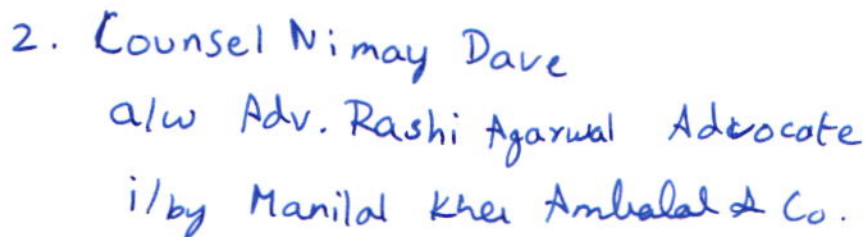 2. Counsel Nimay Dave
a/w Adv. Rashi Agarwal Advocate
i/by Manilal Kher Ambalal & Co.